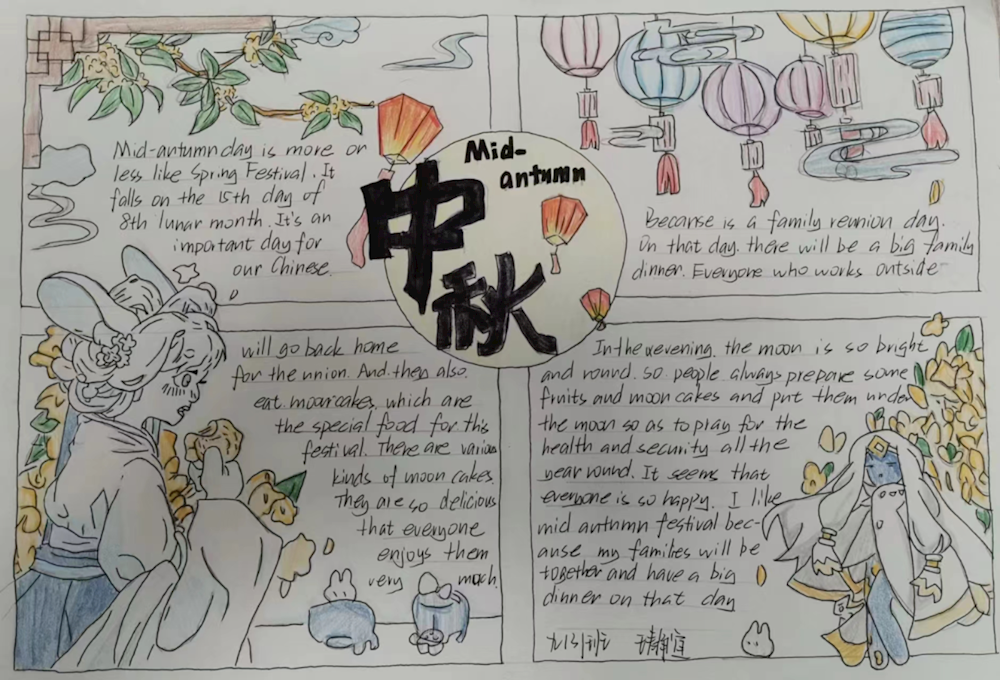 Mid-
antumn
中秋
Mid-antumn day is more or
less like Spring Festival. It
falls on the 15th day of
8th lunar month. It's an
important day for
our Chinese.
Becanse is a family reunion day.
On that day. there will be a big family
dinner. Everyone who works outside
will go back home
for the union. And they also.
eat mooncakes. which are
the special food for this
festival. There are various
kinds of moon cakes.
They are so delicious
that everyone
enjoys them
very much.
In the evening the moon is so bright
and round. so people always prepare some
fruits and moon cakes and put them under
the moon so as to pray for the
health and security all the
year round. It seems that
everyone is so happy. I like
mid autumn festival bec-
ause my families will be
together and have a big
dinner on that day